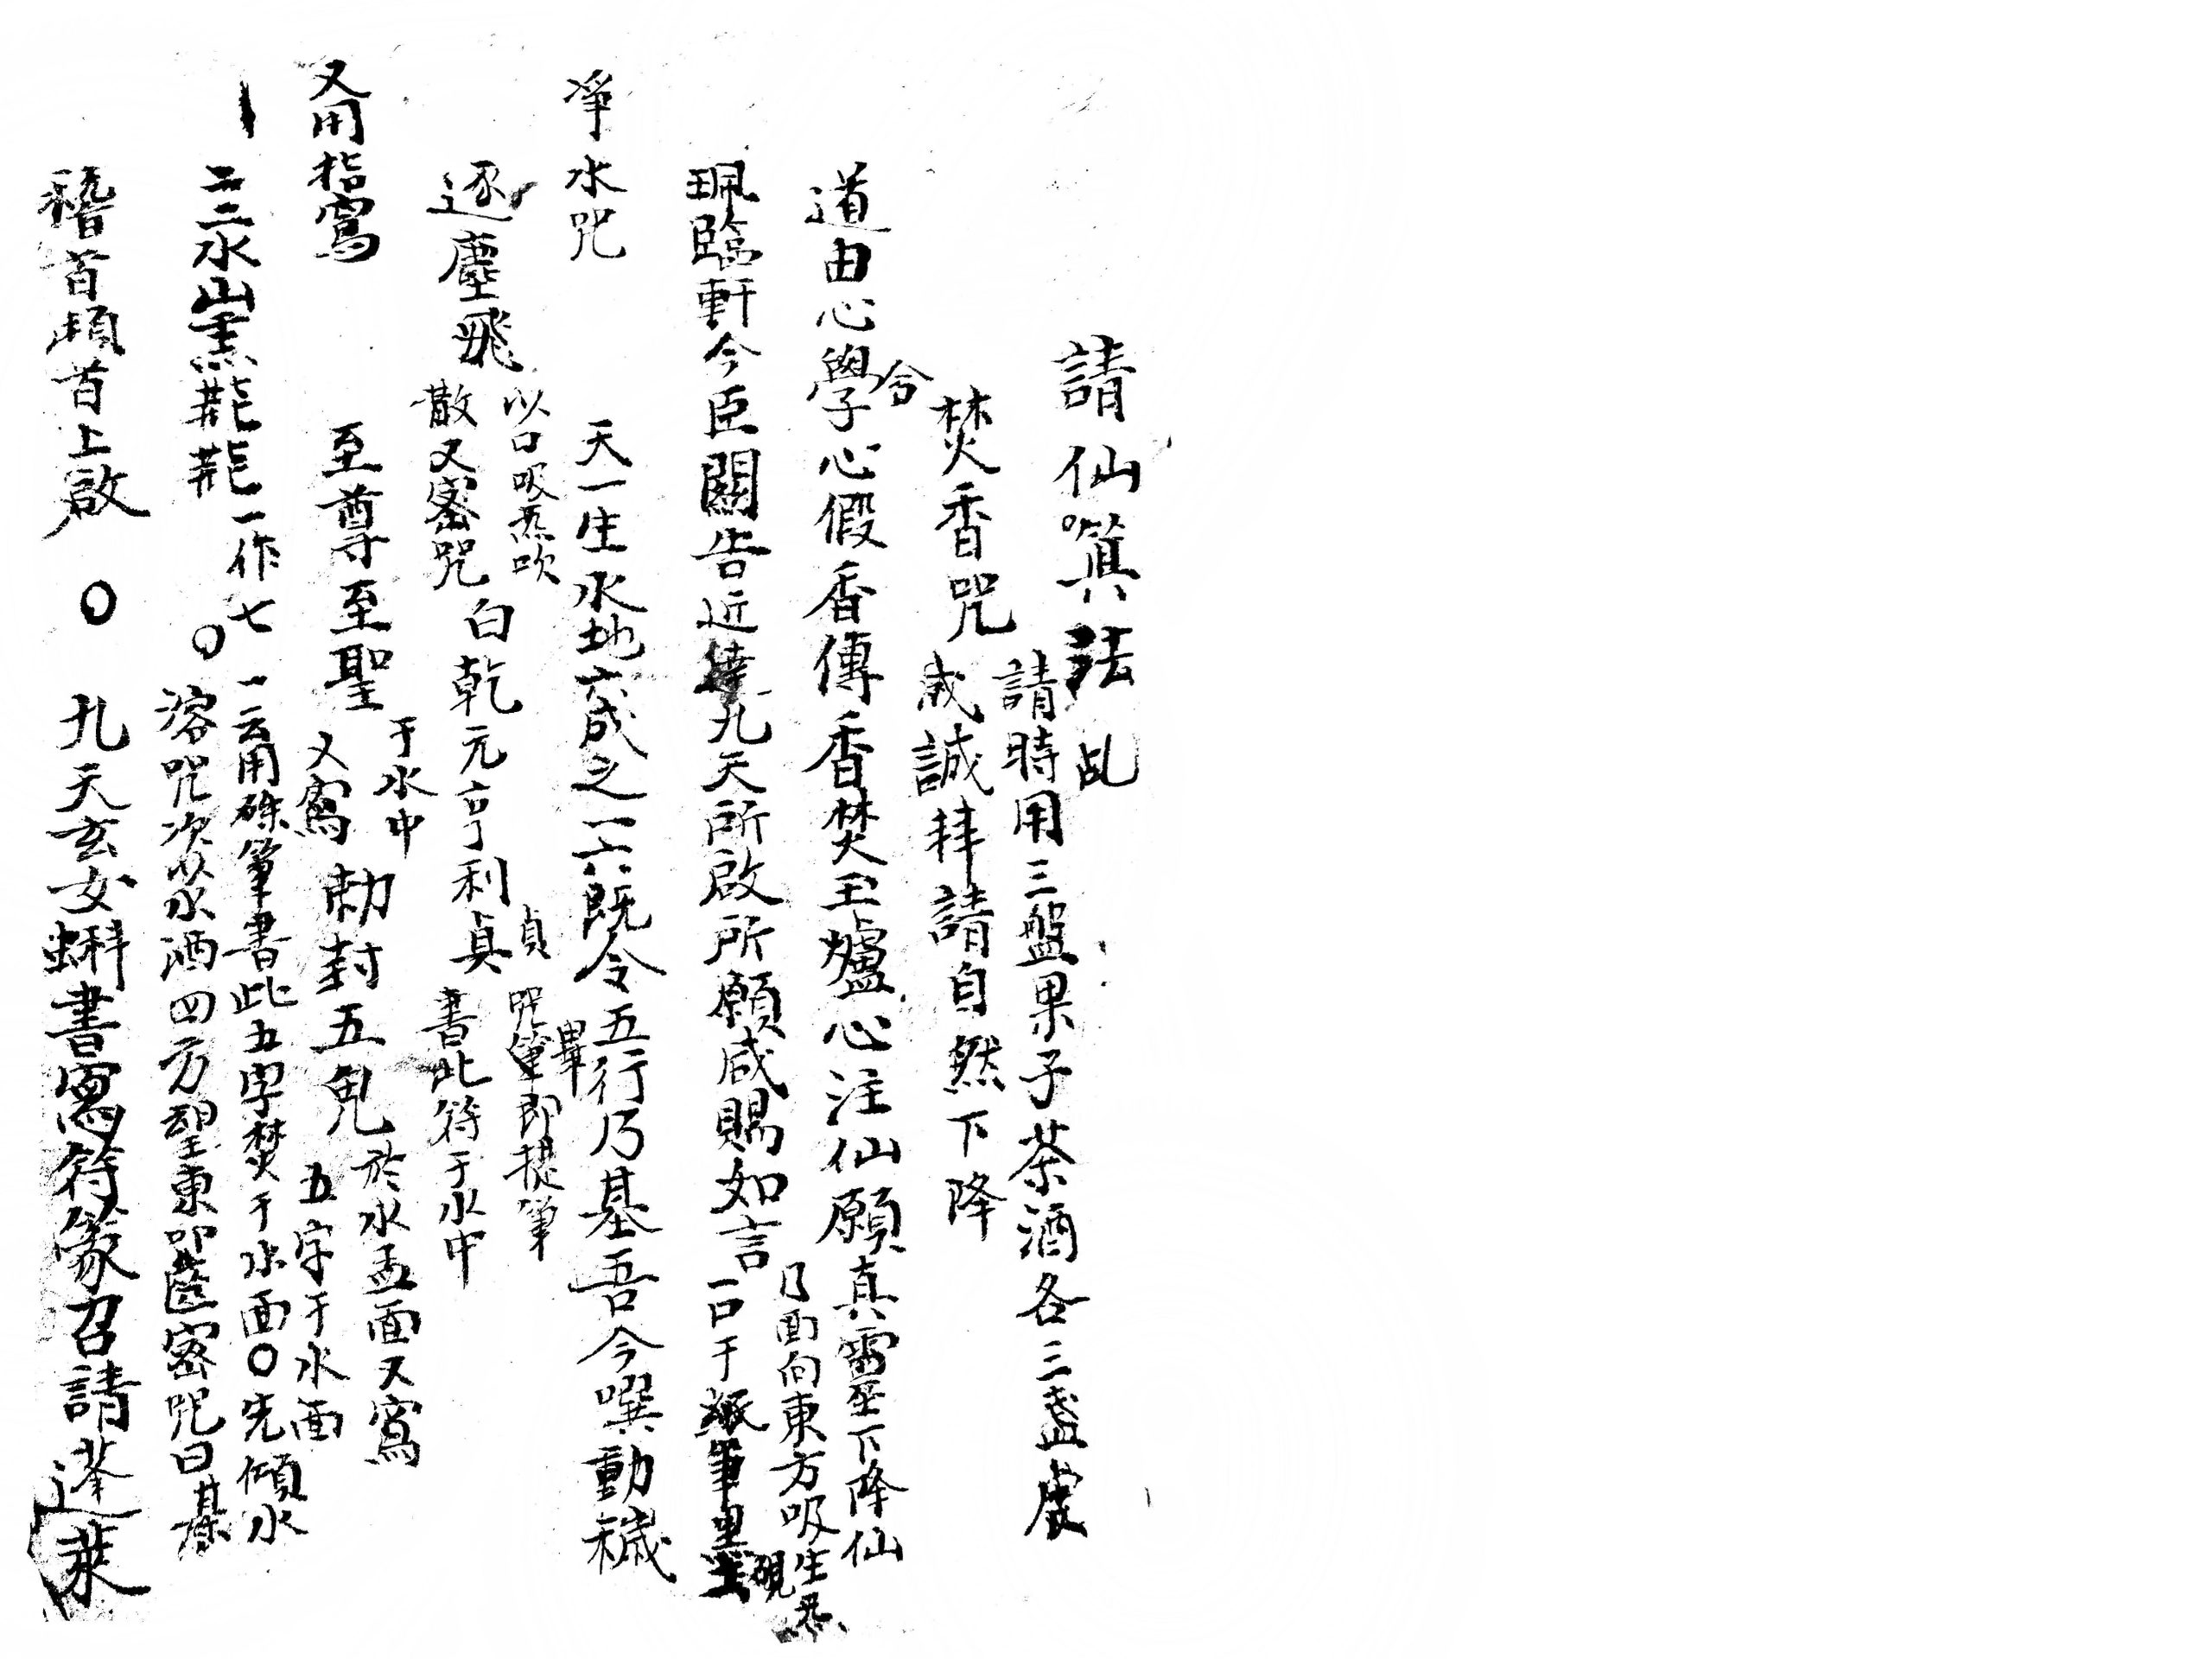 請仙箕法乩
請時用三盤果子茶酒各三盞虔
焚香咒 誠拜請自然下降
道由心學心假香傳香焚玉爐心注仙願真靈下降仙
令
珮臨軒今臣關告近達九天所啟所願咸賜如言
乃面向東方吸生炁
一口于紙筆墨硯
淨水咒 天一生水地六成之一六既令五行乃基吾今噀動穢
畢
逐塵飛
以口吸炁吹
散又密咒
白乾元亨利貞
貞
咒筆即提筆
書此符于水中
又用指寫 至尊至聖
于水中
又寫
勅封五鬼
於水盂面又寫
五字于水面
一作七
一云用硃筆書此五字焚于水面〇先傾水
〇 咒次以水洒四方望東叩齒密咒曰
稽首頓首上啟 〇 九天玄女蝌書寫符篆召請蓬萊